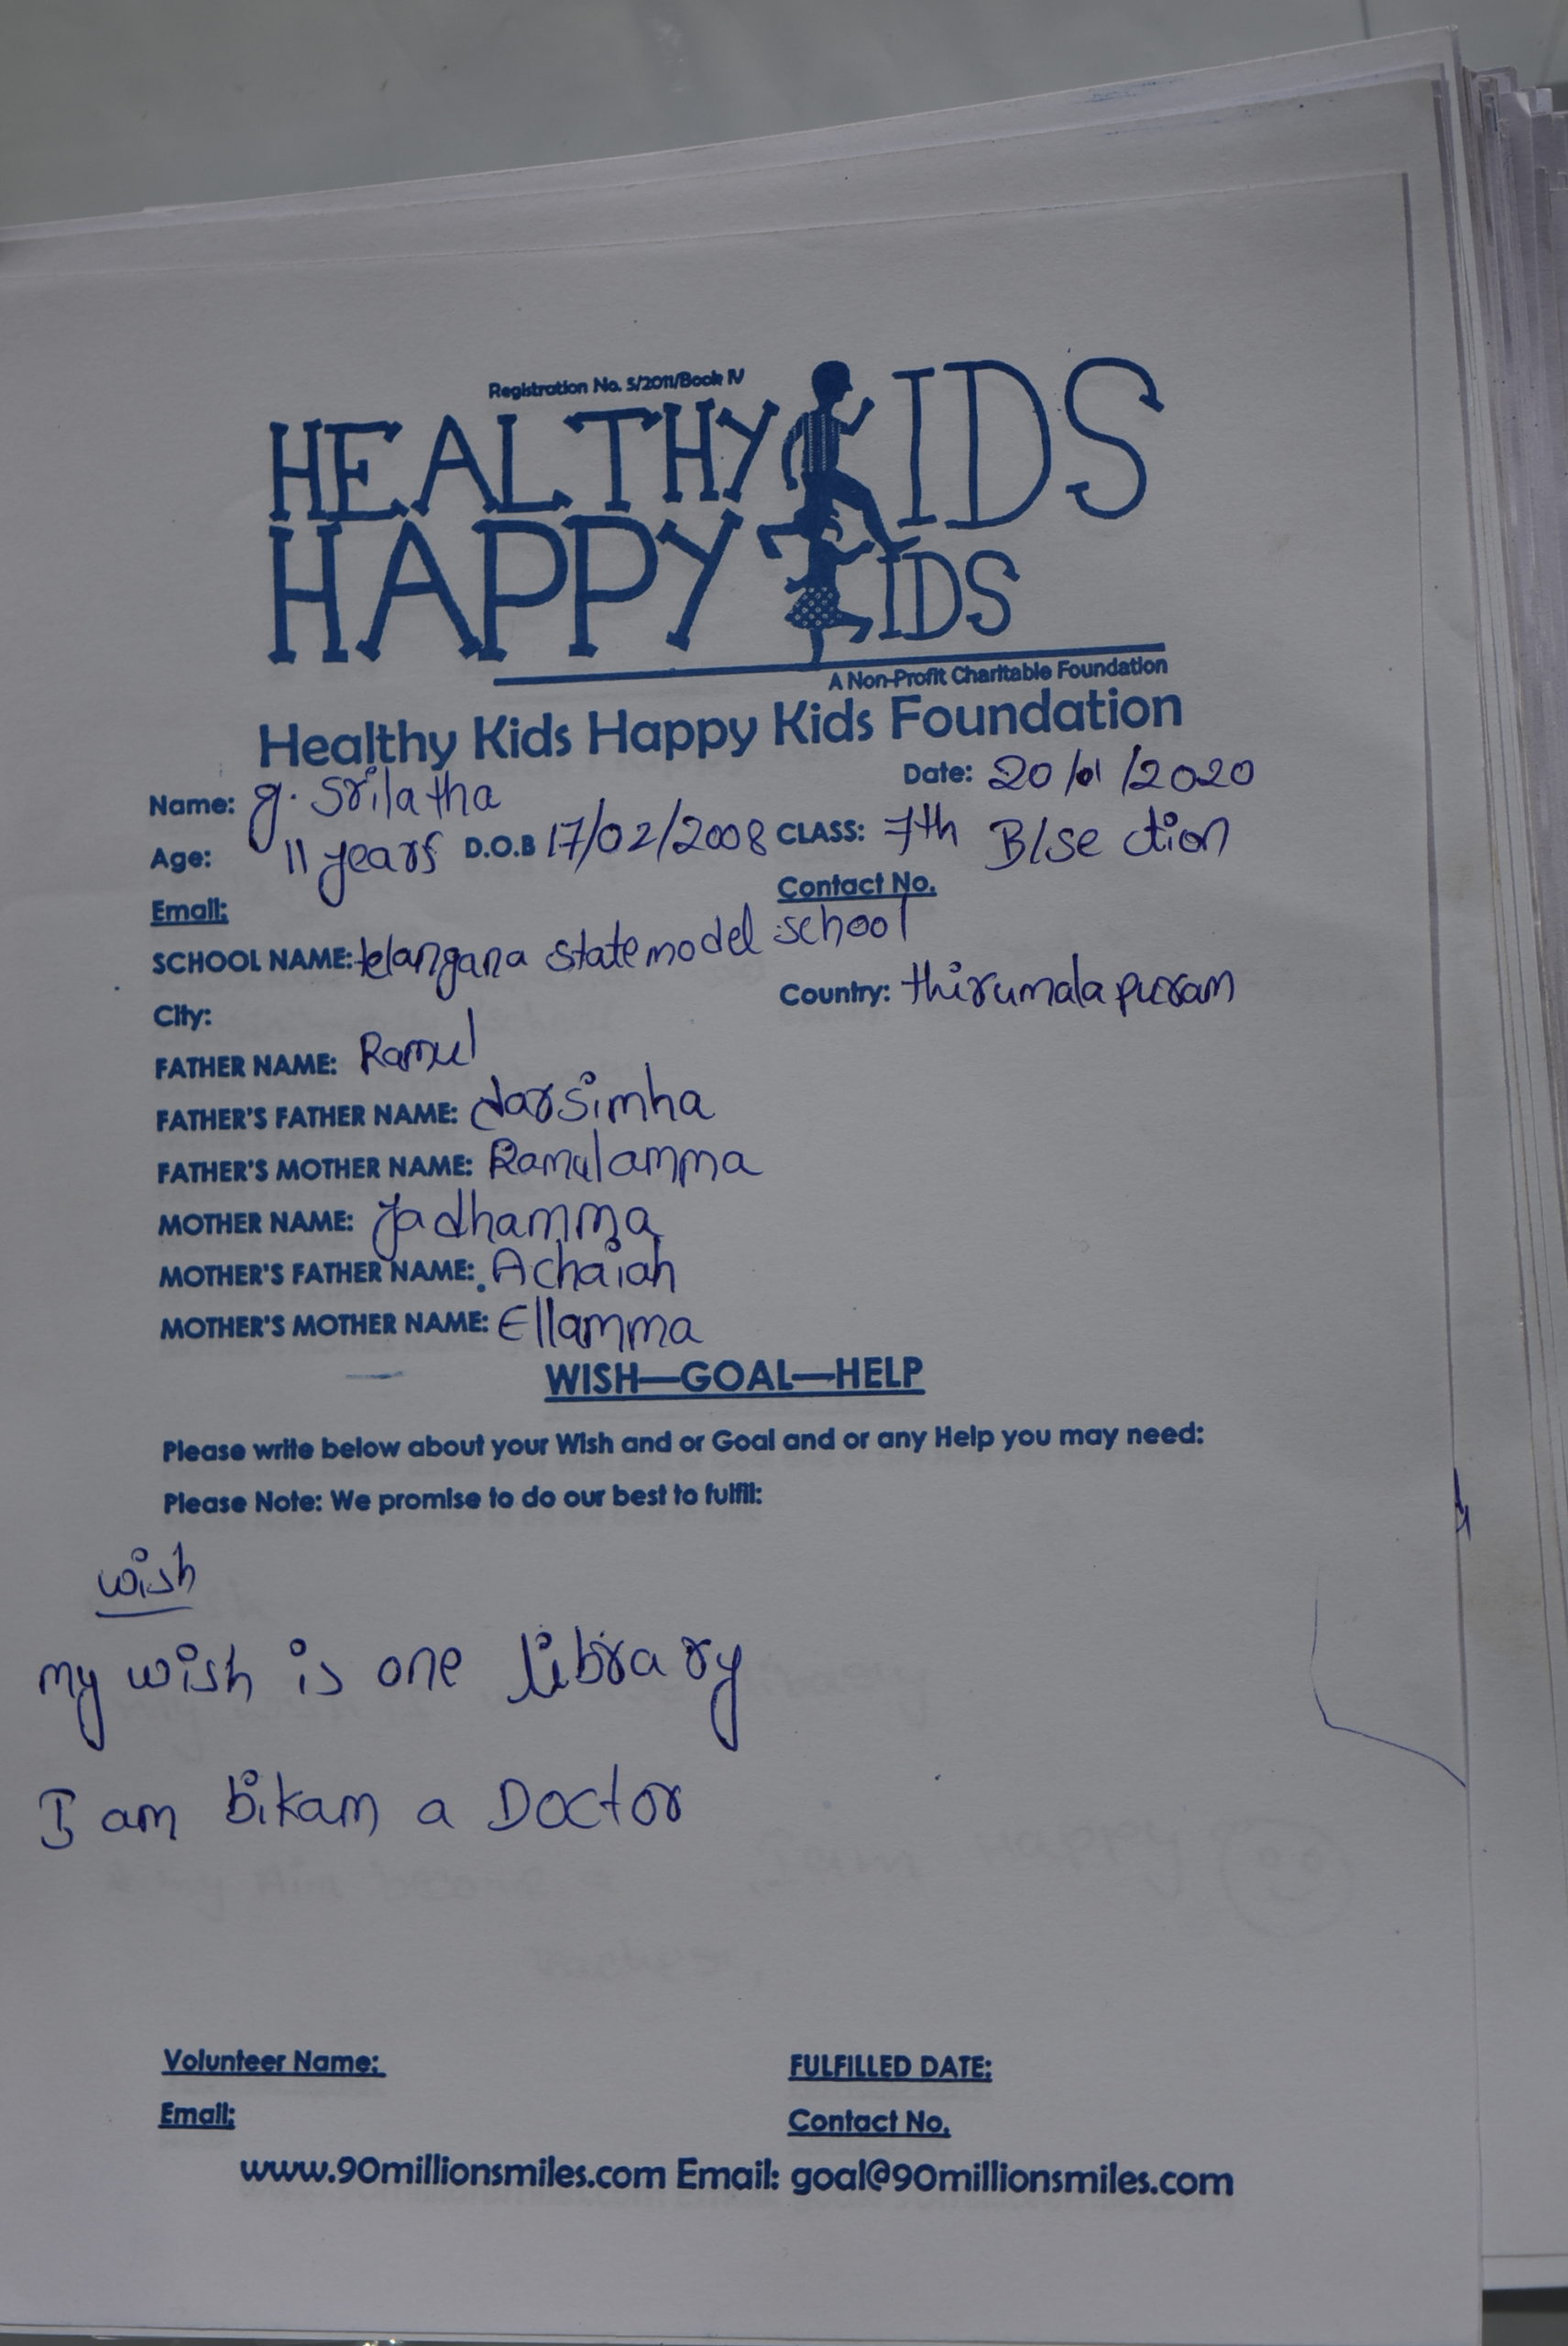 Registration No. 5/2011/Book IV
HEALTHY KIDS
HAPPY KIDS
A Non-Profit Charitable Foundation
Healthy Kids Happy Kids Foundation
Date: 20/01/2020
Name: g. Srilatha
Age: 11 years D.O.B 17/02/2008 CLASS: 7th B/se ction
Email: Contact No.
SCHOOL NAME: telangana state model school
City: Country: thirumalapuram
FATHER NAME: Ramul
FATHER'S FATHER NAME: narsimha
FATHER'S MOTHER NAME: Ramulamma
MOTHER NAME: Jadhamma
MOTHER'S FATHER NAME: Achaiah
MOTHER'S MOTHER NAME: Ellamma
WISH—GOAL—HELP
Please write below about your Wish and or Goal and or any Help you may need:
Please Note: We promise to do our best to fulfil:
wish
my wish is one library
I am bikam a Doctor
Volunteer Name: FULFILLED DATE:
Email: Contact No.
www.90millionsmiles.com Email: goal@90millionsmiles.com